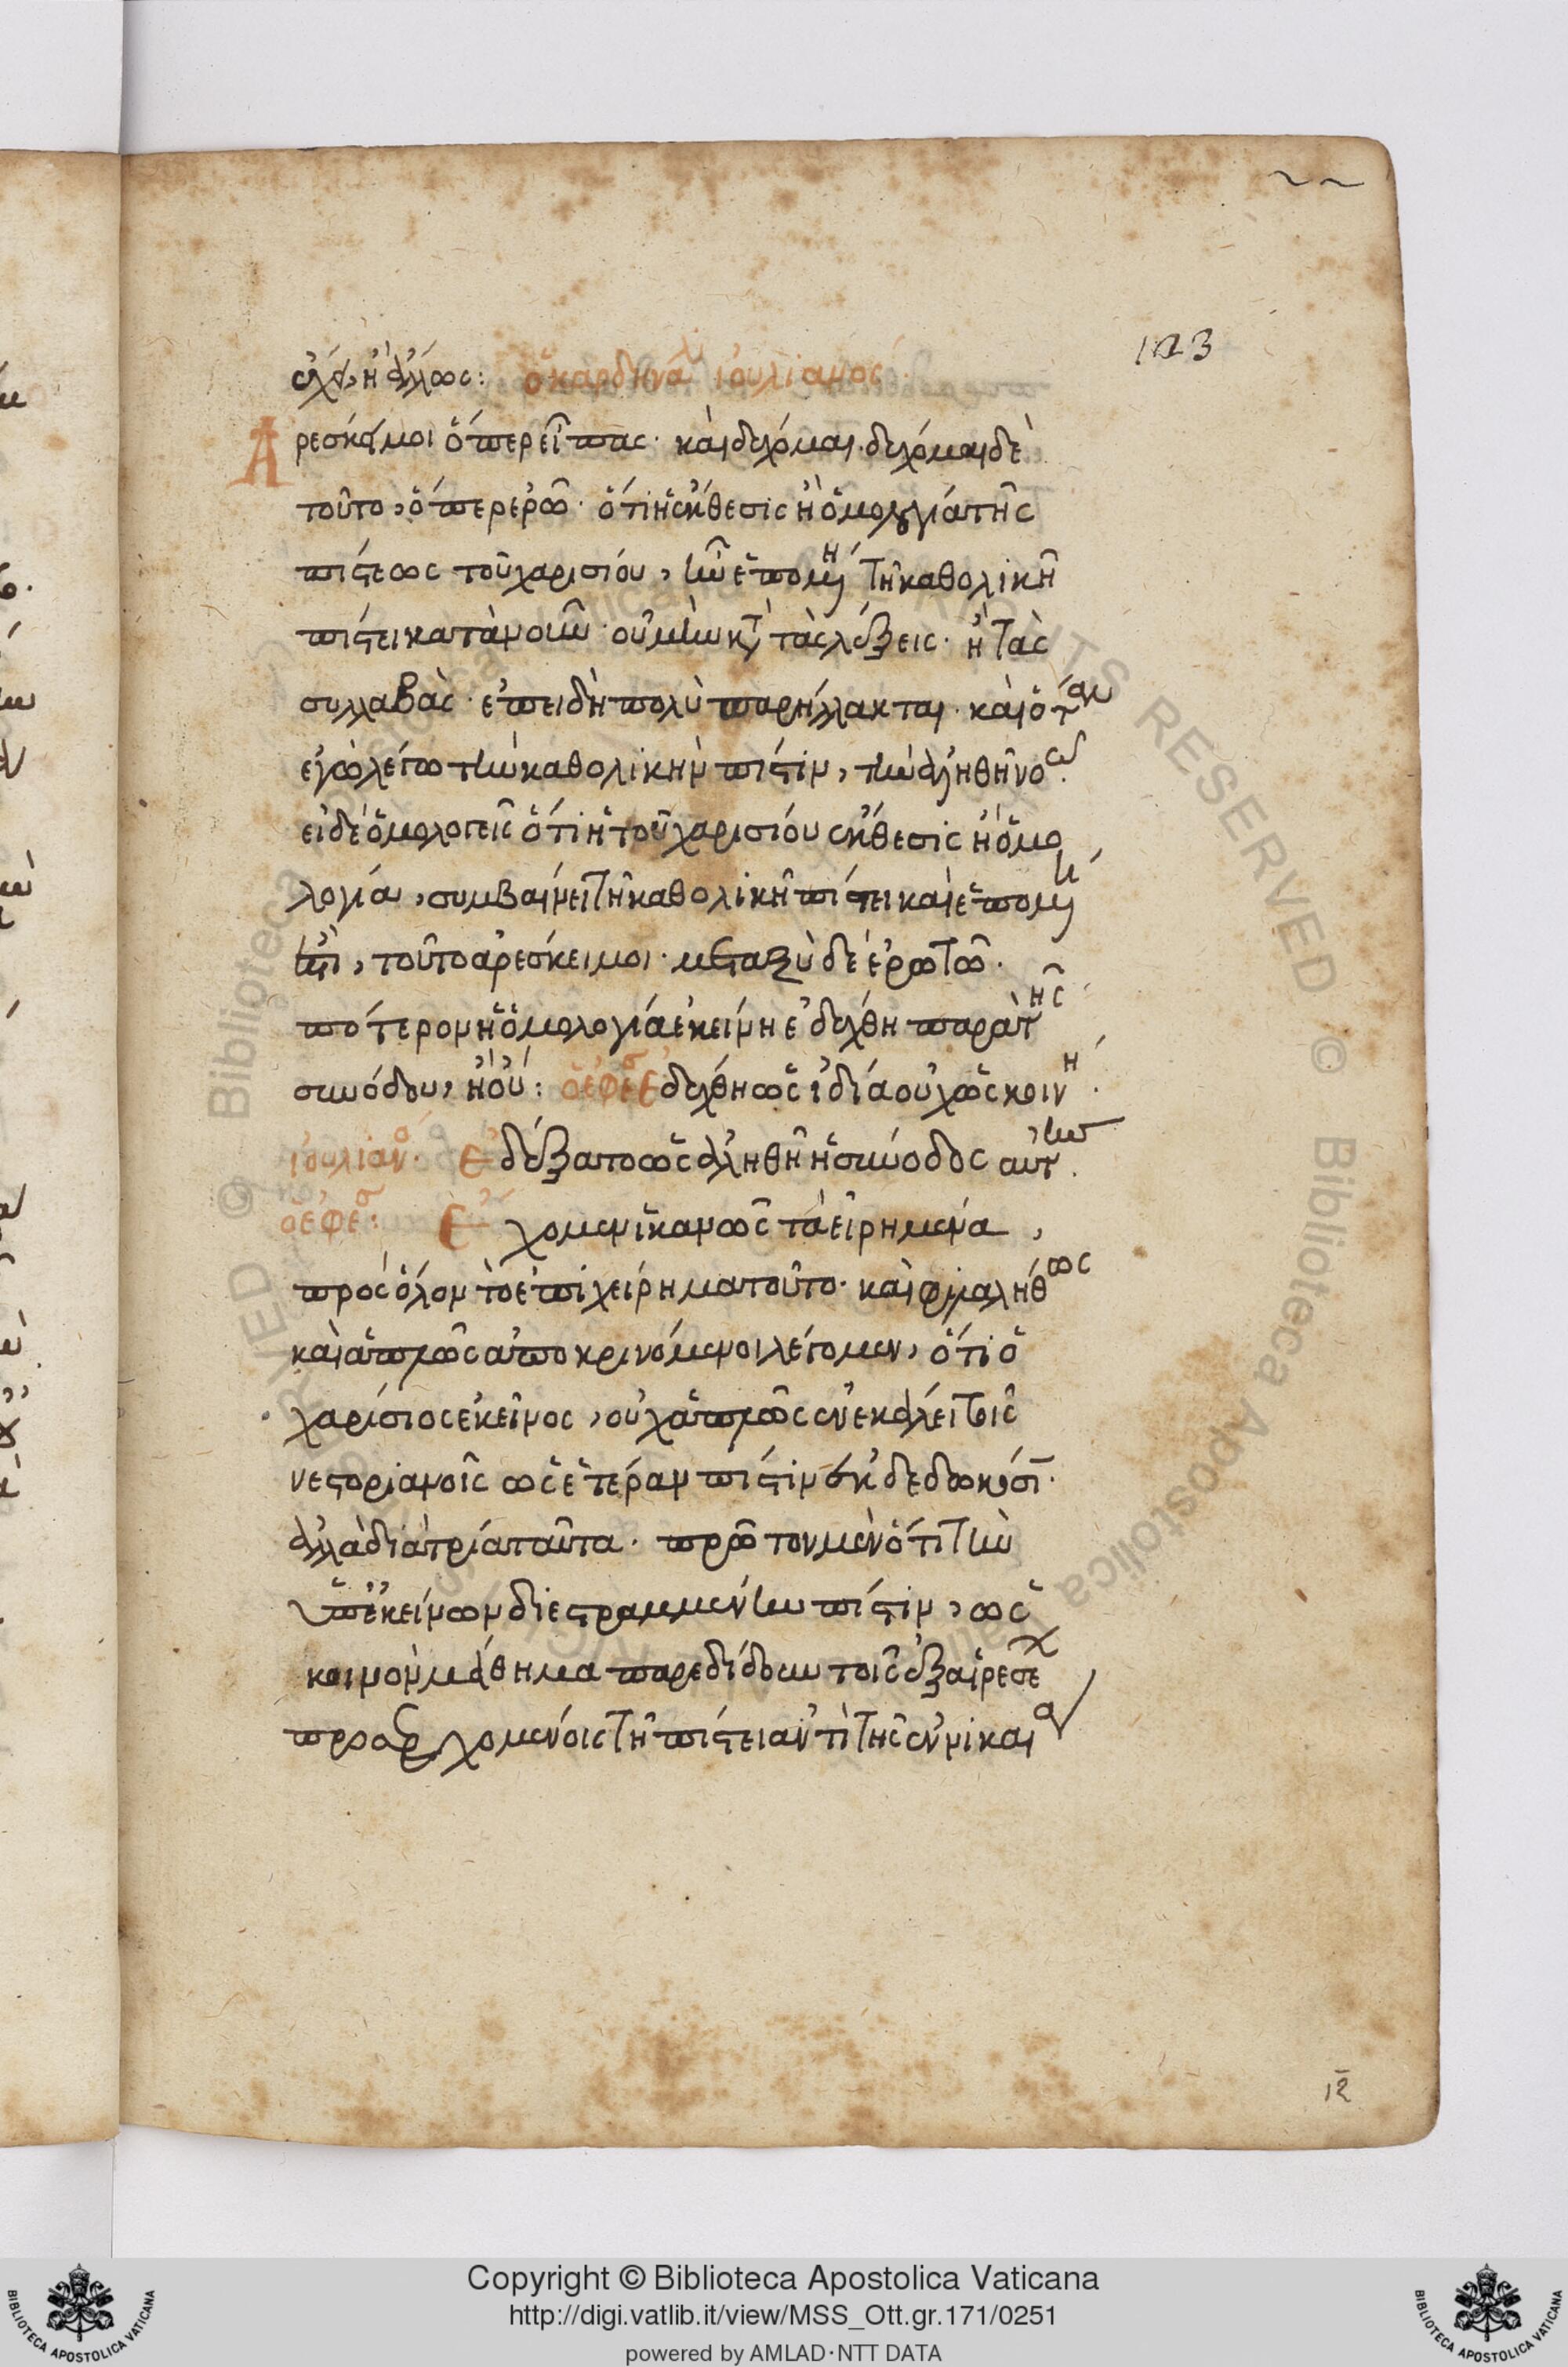 123
ἔχει, ἢ ἄλλως: ὁ καρδηνάλ ἰουλιανός
Ἀρέσκει μοι ὅπερ εἶπας· καὶ δέχομαι· δέχομαι δὲ
τοῦτο, ὅπερ ἐρῶ· ὅτι ἡ ἔκθεσις ἢ ὁμολογία τῆς
πίστεως τοῦ χαρισίου, ἦν ἑπομένη τῇ καθολικῇ
πίστει κατὰ νοῦν· οὐ μὴν κατὰ τὰς λέξεις· ἢ τὰς
συλλαβὰς· ἐπειδὴ πολὺ παρήλλακται· καὶ ὅταν
ἐγὼ λέγω τὴν καθολικὴν πίστιν, τὴν ἀληθῆ νοῶ.
εἰ δὲ ὁμολογεῖς ὅτι ἡ τοῦ χαρισίου ἔκθεσις ἢ ὁμο
λογία, συμβαίνει τῇ καθολικῇ πίστει καὶ ἑπομένη
ἐστὶ, τοῦτο ἀρέσκει μοι· μεταξὺ δὲ ἐρωτῶ·
πότερον ἡ ὁμολογία ἐκείνη ἐδέχθη παρὰ τῆς
συνόδου, ἢ οὔ: ὁ ἐφέσου ἐδέχθη ὡς ἰδία οὐχ ὡς κοινή.
ἰουλιανό· ἐδέξατο ὡς ἀληθῆ ἡ σύνοδος αὐτήν.
ὁ ἐφέσ: Ἔχομεν ἱκανῶς τὰ εἰρημένα,
πρὸς ὅλον τὸ ἐπιχείρημα τοῦτο· καὶ φιλαλήθως
καὶ ἁπλῶς ἀποκρινόμενοι λέγομεν, ὅτι ὁ
χαρίσιος ἐκεῖνος, οὐχ ἁπλῶς ἐνεκάλει τοῖς
νεστοριανοῖς ὡς ἑτέραν πίστιν ἐκδεδωκόσι·
ἀλλὰ διὰ τρία ταῦτα· πρῶτον μὲν ὅτι τὴν
ὑπ' ἐκείνων διεστραμμένην πίστιν, ὡς
κοινὸν μάθημα παρεδίδουν τοῖς ἐξ αἱρέσε
προσερχομένοις τῇ πίστει ἀντὶ τῆς ἐν νικαία
ιβ
Copyright © Biblioteca Apostolica Vaticana
http://digi.vatlib.it/view/MSS_Ott.gr.171/0251
powered by AMLAD·NTT DATA